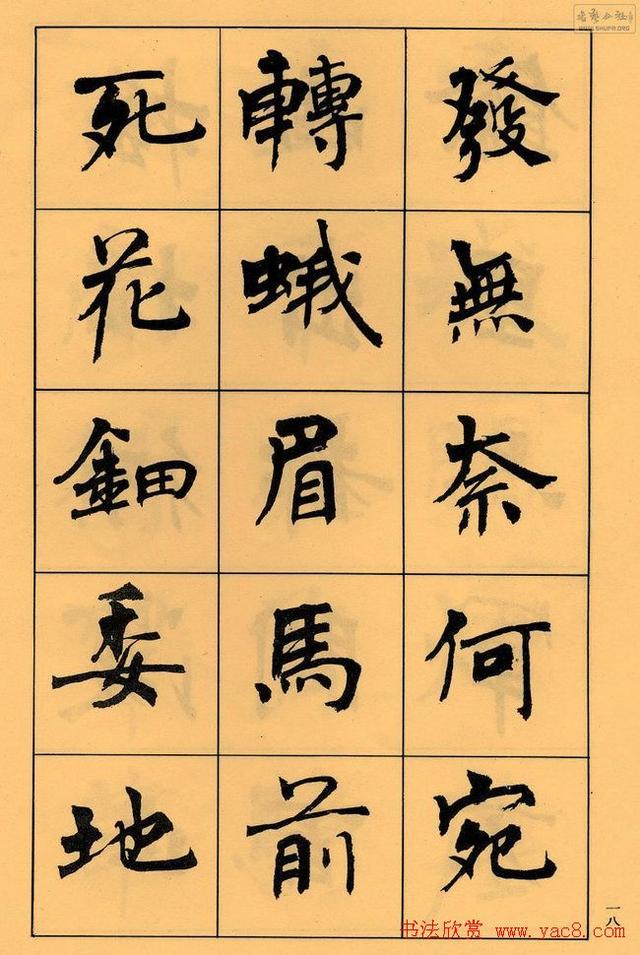 發無奈何宛
轉蛾眉馬前
死花鈿委地
一八
书法欣赏 www.yac8.com
WWW.SHUFA.ORG